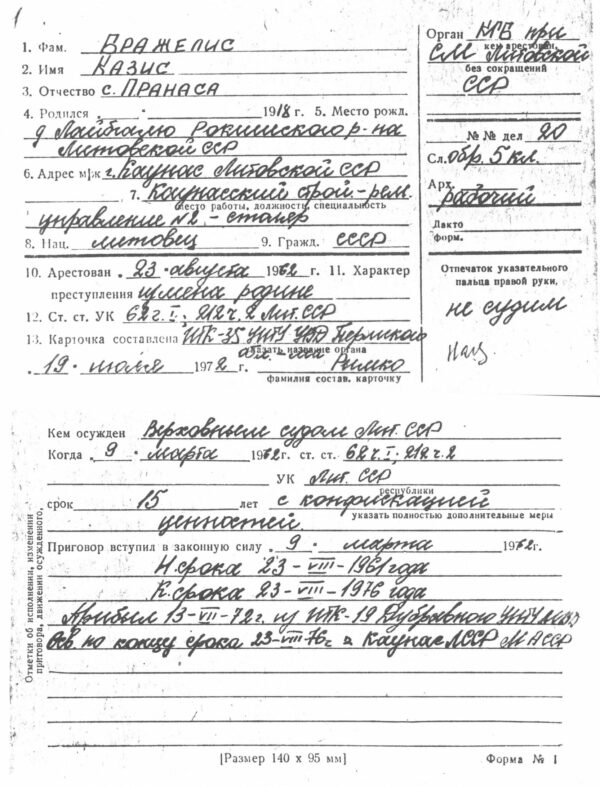 1
1. Фам. БРАЖЕЛИС
2. Имя КАЗИС
3. Отчество с. ПРАНАСА
4. Родился 1918 г. 5. Место рожд.
д. Лайбгалю Рокишкского р-на
Литовской ССР
6. Адрес м|ж г. Каунас Литовской ССР
7. Каунасский строй-рем.
место работы, должность, специальность
управление №2 - столяр
8. Нац. литовец 9. Гражд. СССР
10. Арестован 23 августа 1962 г. 11. Характер
преступления измена родине
12. Ст. ст. УК 62 ч. I; 212 ч. 2 Лит. ССР
13. Карточка составлена ИТК-35 УИТУ УВД Пермского
указать название органа
19 июля 1972 г. Рымко
фамилия состав. карточку
Орган КГБ при
кем арестован,
СМ Литовской
без сокращений
ССР
№ № дел 20
Сл. обр. 5 кл.
Арх.
рабочий
Дакто
форм.
Отпечаток указательного
пальца правой руки,
не судим
Кем осужден Верховным судом Лит. ССР
Когда 9 марта 1962 г. ст. ст. 62 ч. I; 212 ч. 2
УК Лит. ССР
республики
срок 15 лет с конфискацией
указать полностью дополнительные меры
ценностей
Приговор вступил в законную силу 9 марта 1962 г.
Н. срока 23-VIII-1961 года
К. срока 23-VIII-1976 года
Прибыл 13-VII-72 г. из ИТК-19 Дубравного УИТУ МВД
Осв. по концу срока 23-VIII-76 г. в Каунас ЛССР МАССР
Отметки об исполнении, изменении
приговора, движении осужденного,
[Размер 140 x 95 мм] Форма № 1